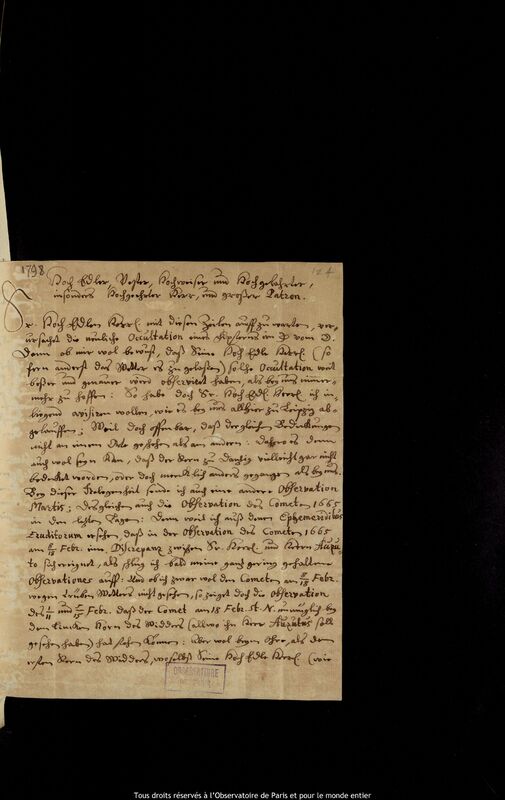 1798
124
Hoch Edler, Vester, Hochweiser und Hochgelahrter,
insonders Hochgeehrter Herr, und grosser Patron.
Er. Hoch Edlen Herrl. mit diesen Zeilen auffzuwarten, ver-
ursachet die neuliche Occultation eines Fixsterns im vom
Dann ob mir wol bewust, daß Seine Hoch Edle Herrl. (so
fern anderst das Wetter es zugelassen) solche Occultation weit
besser und genauer werd observiret haben, als bey uns immer-
mehr zu hoffen: So habe doch Er. Hoch Edl. Herrl. ich in-
liegend avisiren wollen, wie es bey uns allhier zu Leipzig ab-
gelauffen; Weil doch offenbar, daß dergleichen Bedeckungen
nicht an einem Orte geschehen als am andern: Dahero es denn
auch wol seyn kan, daß der Stern zu Dantzig vielleicht gar nicht
bedecket worden, oder doch mercklich anders gegangen als bey uns.
Bey dieser Gelegenheit sende ich auch eine andere Observation
Martis; desgleichen auch die Observation des Cometen 1665
in den letzten Tagen: Denn weil ich auß denen Ephemeridibus
Eruditorum ersehen, daß in der Observation des Cometen 1665
am 8/18 Febr. eine Discrepanz zwischen Er. Herrl. und Herrn Auzu-
to sich ereignet, als schlug ich bald meine gantz gering gehaltene
Observationes auff: Und ob ich zwar wol den Cometen am 8/18 Febr.
wegen trüben Wetters nicht gesehen, so zeiget doch die Observation
des 1/11 und Febr. daß der Comet am 18 Febr. St. N. unmüglich bey
dem lincken Horn des Widders (allwo ihn Herr Auzutus soll
gesehen haben) hat stehen können: Aber wol beym Ohre, als dem
ersten Stern des Widders, woselbst Seine Hoch Edle Herrl. (wie
OBSERVATOIRE
DE PARIS
Tous droits réservés à l'Observatoire de Paris et pour le monde entier